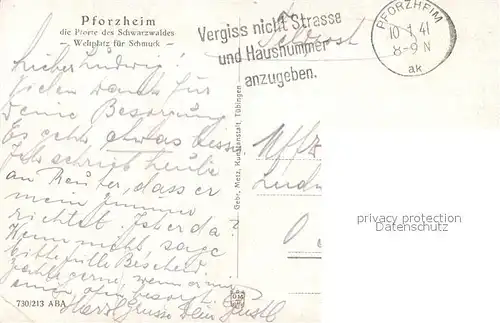 Pforzheim
die Pforte des Schwarzwaldes
- Weltplatz für Schmuck -
Vergiss nicht Strasse
und Hausnummer
anzugeben.
Feldpost
PFORZHEIM
10 41
8-9 N
ak
Lieber Ludwig!
Vielen Dank für
Deine Besorgung
Es geht etwas besser
Ich schrieb heute
an Reuter, dass er
mein Zimmer
richtet. Ist er da?
Wenn nicht sage
bitte Bescheid.
Zahle gerne, wenn er mir
einen besorgt.
Herzl. Grüsse Dein Gustl
Gebr. Metz, Kunstanstalt, Tübingen
Uffz.
Ludw
privacy protection
Datenschutz
730/213 ABA